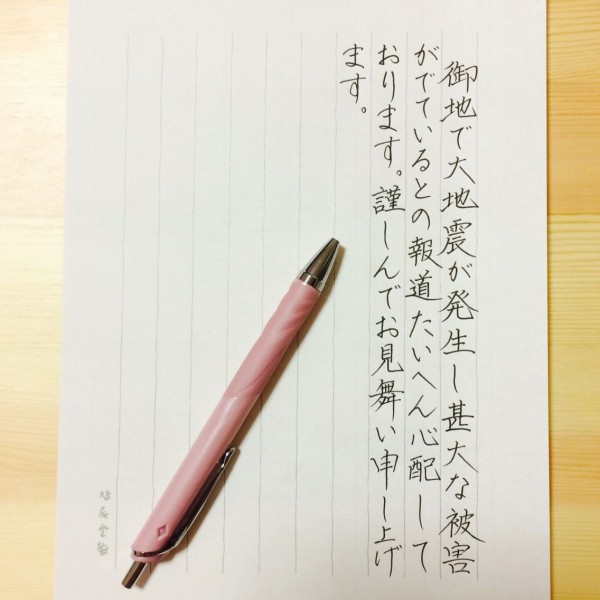 御地で大地震が発生し甚大な被害
がでているとの報道たいへん心配して
おります。謹しんでお見舞い申し上げ
ます。